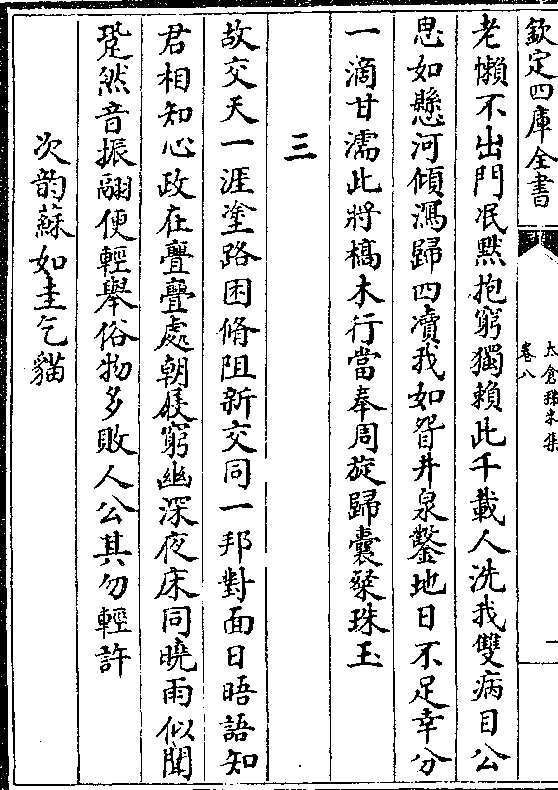 欽定四庫全書
太倉稊米集
卷八
一
老懶不出門泯黙抱窮獨賴此千載人洗我雙病目公
思如懸河傾瀉歸四瀆我如眢井泉鑿地日不足幸分
一滴甘濡此將槁木行當奉周旋歸囊粲珠玉
三
故交天一涯塗路困脩阻新交同一邦對面日晤語知
君相知心政在亹亹處朝屐窮幽深夜床同曉雨似聞
跫然音振翮便輕舉俗物多敗人公其勿輕許
次韵蘇如圭乞貓